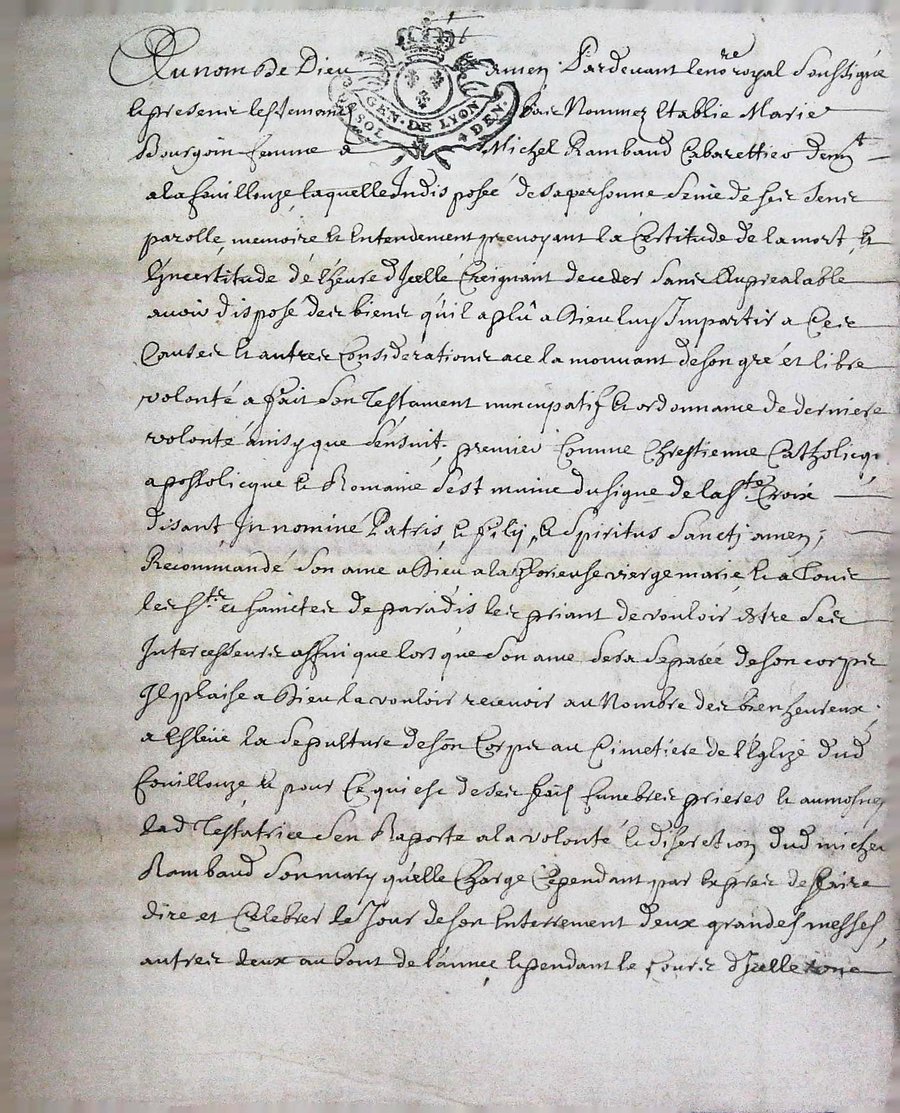 Au nom De Dieu amen Pardevant le no.re royal Soussigné
GEN. DE LYON
SOL 4 DEN.
et presens les temoins bas Nommez Establie Marie
Bourgoin femme a Michel Rambaud Cabarettier dem.t
a la fouillouze, laquelle Indisposée de sa personne Saine de ses Sens
parolle, memoire et Entendement prevoyant la Certitude de la mort, et
l'incertitude de l'heure d'Icelle Creignant deceder Sans Au prealable
avoir disposé des biens qu'il a plû a Dieu luy Impartir a Ces
Causes et autres Considerations a ce la mouvant de son gré et libre
volonté a fait Son Testament nuncupatif et ordonnance de derniere
volonté ainsy que S'ensuit, premier Comme Chrestienne Catholicq.
apostolicque et Romaine S'est munie du signe de la S.te Croix
disant In nomine Patris, et filij, et Spiritus Sancti amen,
Recommandé Son ame a Dieu a la Glorieuse vierge marie, et a Tous
les S.ts et sainctes de paradis les priant de vouloir estre Ses
Intercesseurs affin que lors que Son ame Sera Separée de son corps
Il plaise a Dieu la vouloir recevoir au Nombre des bien heureux,
a Esleüe la Sepulture de son Corps au Cimetiere de l'Eglize dud
Fouillouze, et pour Ce qui est de ses frais funebres prieres et aumosnes
lad Testatrice S'en Raporte a la volonté et discretion dud michel
Rambaud Son mary qu'elle Charge Cependant par Exprés de faire
dire et Celebrer le Jour de son Enterrement deux grandes messes,
autres deux au bout de l'année, et pendant le Cours d'Icelle